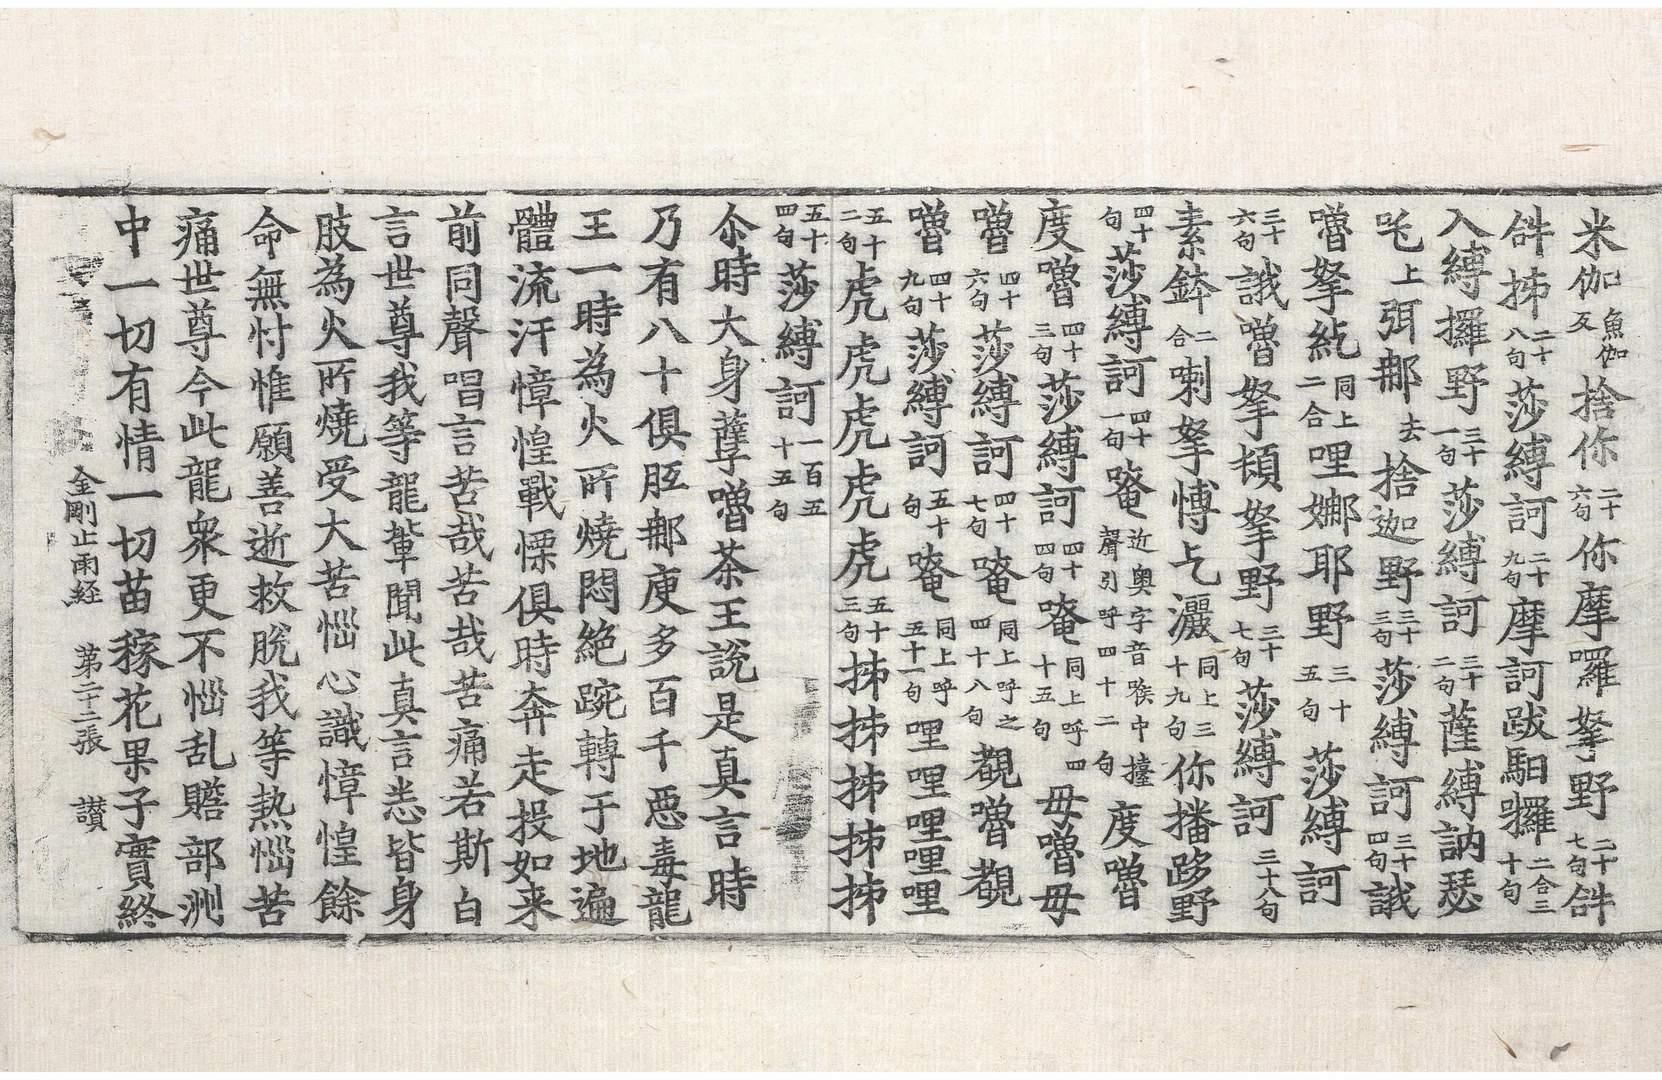 米伽魚伽反捨你二十六句你摩囉拏野二十七句𤙖
𤙖㧗二十八句莎縛訶二十九句摩訶跋馹囉二合三十句
入縛攞野三十一句莎縛訶三十二句薩縛訥瑟
吒上弭郍去捨迦野三十三句莎縛訶三十四句誐
嚕拏紇同上二合哩娜耶野三十五句莎縛訶
三十六句誐嚕拏頞拏野三十七句莎縛訶三十八句
素鉢二合喇拏愽乞灑同上三十九句你播跢野
四十句莎縛訶四十一句唵近奧字音喉中擡聲引呼四十二句度嚕
度嚕四十三句莎縛訶四十四句唵同上呼四十五句毋嚕毋
嚕四十六句莎縛訶四十七句唵同上呼之四十八句覩嚕覩
嚕四十九句莎縛訶五十句唵同上呼五十一句哩哩哩哩哩
五十二句虎虎虎虎虎五十三句㧗㧗㧗㧗㧗
五十四句莎縛訶一百五十五句
尒時大身孽嚕茶王說是真言時
乃有八十俱胝郍庾多百千惡毒龍
王一時為火所燒悶絕踠轉于地遍
體流汗慞惶戰慄俱時奔走投如来
前同聲唱言苦哉苦哉苦痛若斯白
言世尊我等龍輩聞此真言悉皆身
肢為火所燒受大苦惱心識慞惶餘
命無忖惟願善逝救脫我等熱惱苦
痛世尊今此龍衆更不惱乱贍部洲
中一切有情一切苗稼花果子實終
金剛止雨経　第二十二張　讃